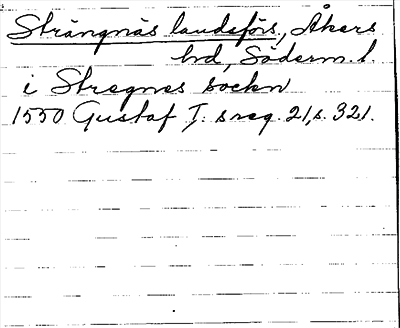 Strängnäs landsförs., Åkers
hd, Söderm. l.
i Stregnes sockn
1550 Gustaf I: s reg. 21, s. 321.